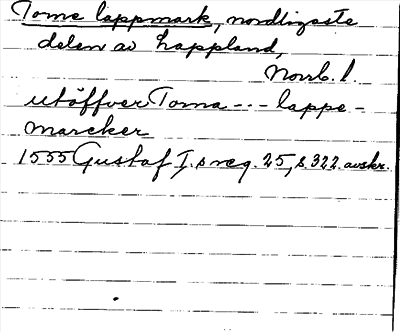 Torne lappmark, nordligaste
delen av Lappland,
Norrb. l.
utöffver Torna --- lappe-
marcker
1555 Gustaf I.s reg. 25, s. 322. avskr.